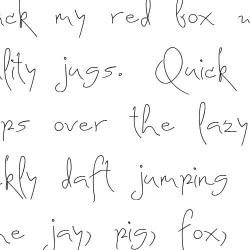 ick my red fox w
lity jugs. Quick
ps over the lazy
kly daft jumping
he jay, pig, fox,